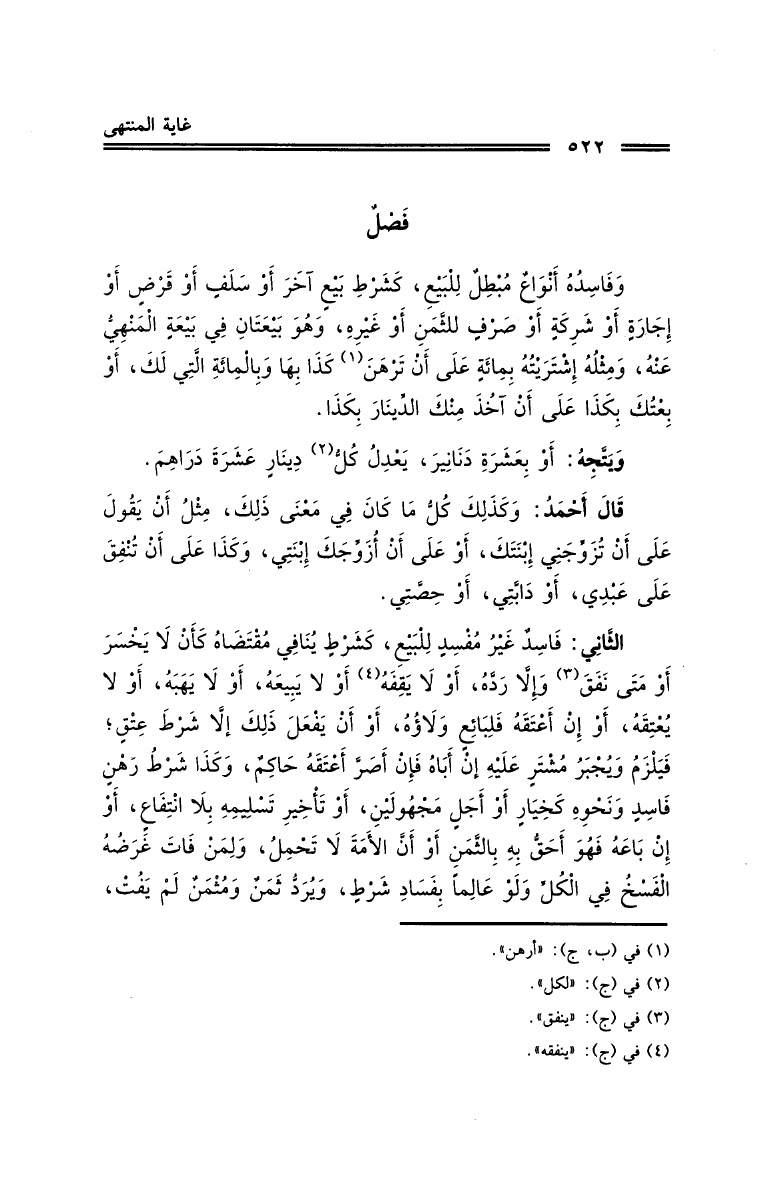 غاية المنتهى
٥٢٢
فَصْلٌ
وَفَاسِدُهُ أَنْوَاعٌ مُبْطِلٌ لِلْبَيْعِ، كَشَرْطِ بَيْعٍ آخَرَ أَوْ سَلَفٍ أَوْ قَرْضٍ أَوْ
إِجَارَةٍ أَوْ شَرِكَةٍ أَوْ صَرْفٍ للثَّمَنِ أَوْ غَيْرِهِ، وَهُوَ بَيْعَتَانِ فِي بَيْعَةٍ الْمَنْهِيُّ
عَنْهُ، وَمِثْلُهُ إِشْتَرَيْتُهُ بِمِائَةٍ عَلَى أَنْ تَرْهَنَ(١) كَذَا بِهَا وَبِالْمِائَةِ الَّتِي لَكَ، أَوْ
بِعْتُكَ بِكَذَا عَلَى أَنْ آخُذَ مِنْكَ الدِّينَارَ بِكَذَا.
وَيَتَّجِهُ: أَوْ بِعَشَرَةِ دَنَانِيرَ، يَعْدِلُ كُلُّ(٢) دِينَارٍ عَشَرَةَ دَرَاهِمَ.
قَالَ أَحْمَدُ: وَكَذَلِكَ كُلُّ مَا كَانَ فِي مَعْنَى ذَلِكَ، مِثْلُ أَنْ يَقُولَ
عَلَى أَنْ تُزَوِّجَنِي إِبْنَتَكَ، أَوْ عَلَى أَنْ أُزَوِّجَكَ إِبْنَتِي، وَكَذَا عَلَى أَنْ تُنْفِقَ
عَلَى عَبْدِي، أَوْ دَابَّتِي، أَوْ حِصَّتِي.
الثَّانِي: فَاسِدٌ غَيْرُ مُفْسِدٍ لِلْبَيْعِ، كَشَرْطٍ يُنَافِي مُقْتَضَاهُ كَأَنْ لَا يَخْسَرَ
أَوْ مَتَى نَفَقَ(٣) وَإِلَّا رَدَّهُ، أَوْ لَا يَقِفَهُ(٤) أَوْ لا يَبِيعَهُ، أَوْ لَا يَهَبَهُ، أَوْ لا
يُعْتِقَهُ، أَوْ إِنْ أَعْتَقَهُ فَلِبَائِعٍ وَلَاؤُهُ، أَوْ أَنْ يَفْعَلَ ذَلِكَ إلَّا شَرْطَ عِتْقٍ؛
فَيَلْزَمُ وَيُجْبَرُ مُشْتَرٍ عَلَيْهِ إنْ أَبَاهُ فَإِنْ أَصَرَّ أَعْتَقَهُ حَاكِمٌ، وَكَذَا شَرْطُ رَهْنٍ
فَاسِدٍ وَنَحْوِهِ كَخِيَارٍ أَوْ أَجَلٍ مَجْهُولَيْنِ، أَوْ تَأْخِيرِ تَسْلِيمِهِ بِلَا انْتِفَاعٍ، أَوْ
إِنْ بَاعَهُ فَهُوَ أَحَقُّ بِهِ بِالثَّمَنِ أَوْ أَنَّ الأَمَةَ لَا تَحْمِلُ، وَلِمَنْ فَاتَ غَرَضُهُ
الْفَسْخُ فِي الْكُلِّ وَلَوْ عَالِماً بِفَسَادِ شَرْطٍ، وَيُرَدُّ ثَمَنٌ وَمُثْمَنٌ لَمْ يَفُتْ،
(١) في (ب، ج): «أرهن».
(٢) في (ج): «لكل».
(٣) في (ج): «ينفق».
(٤) في (ج): «ينفقه».